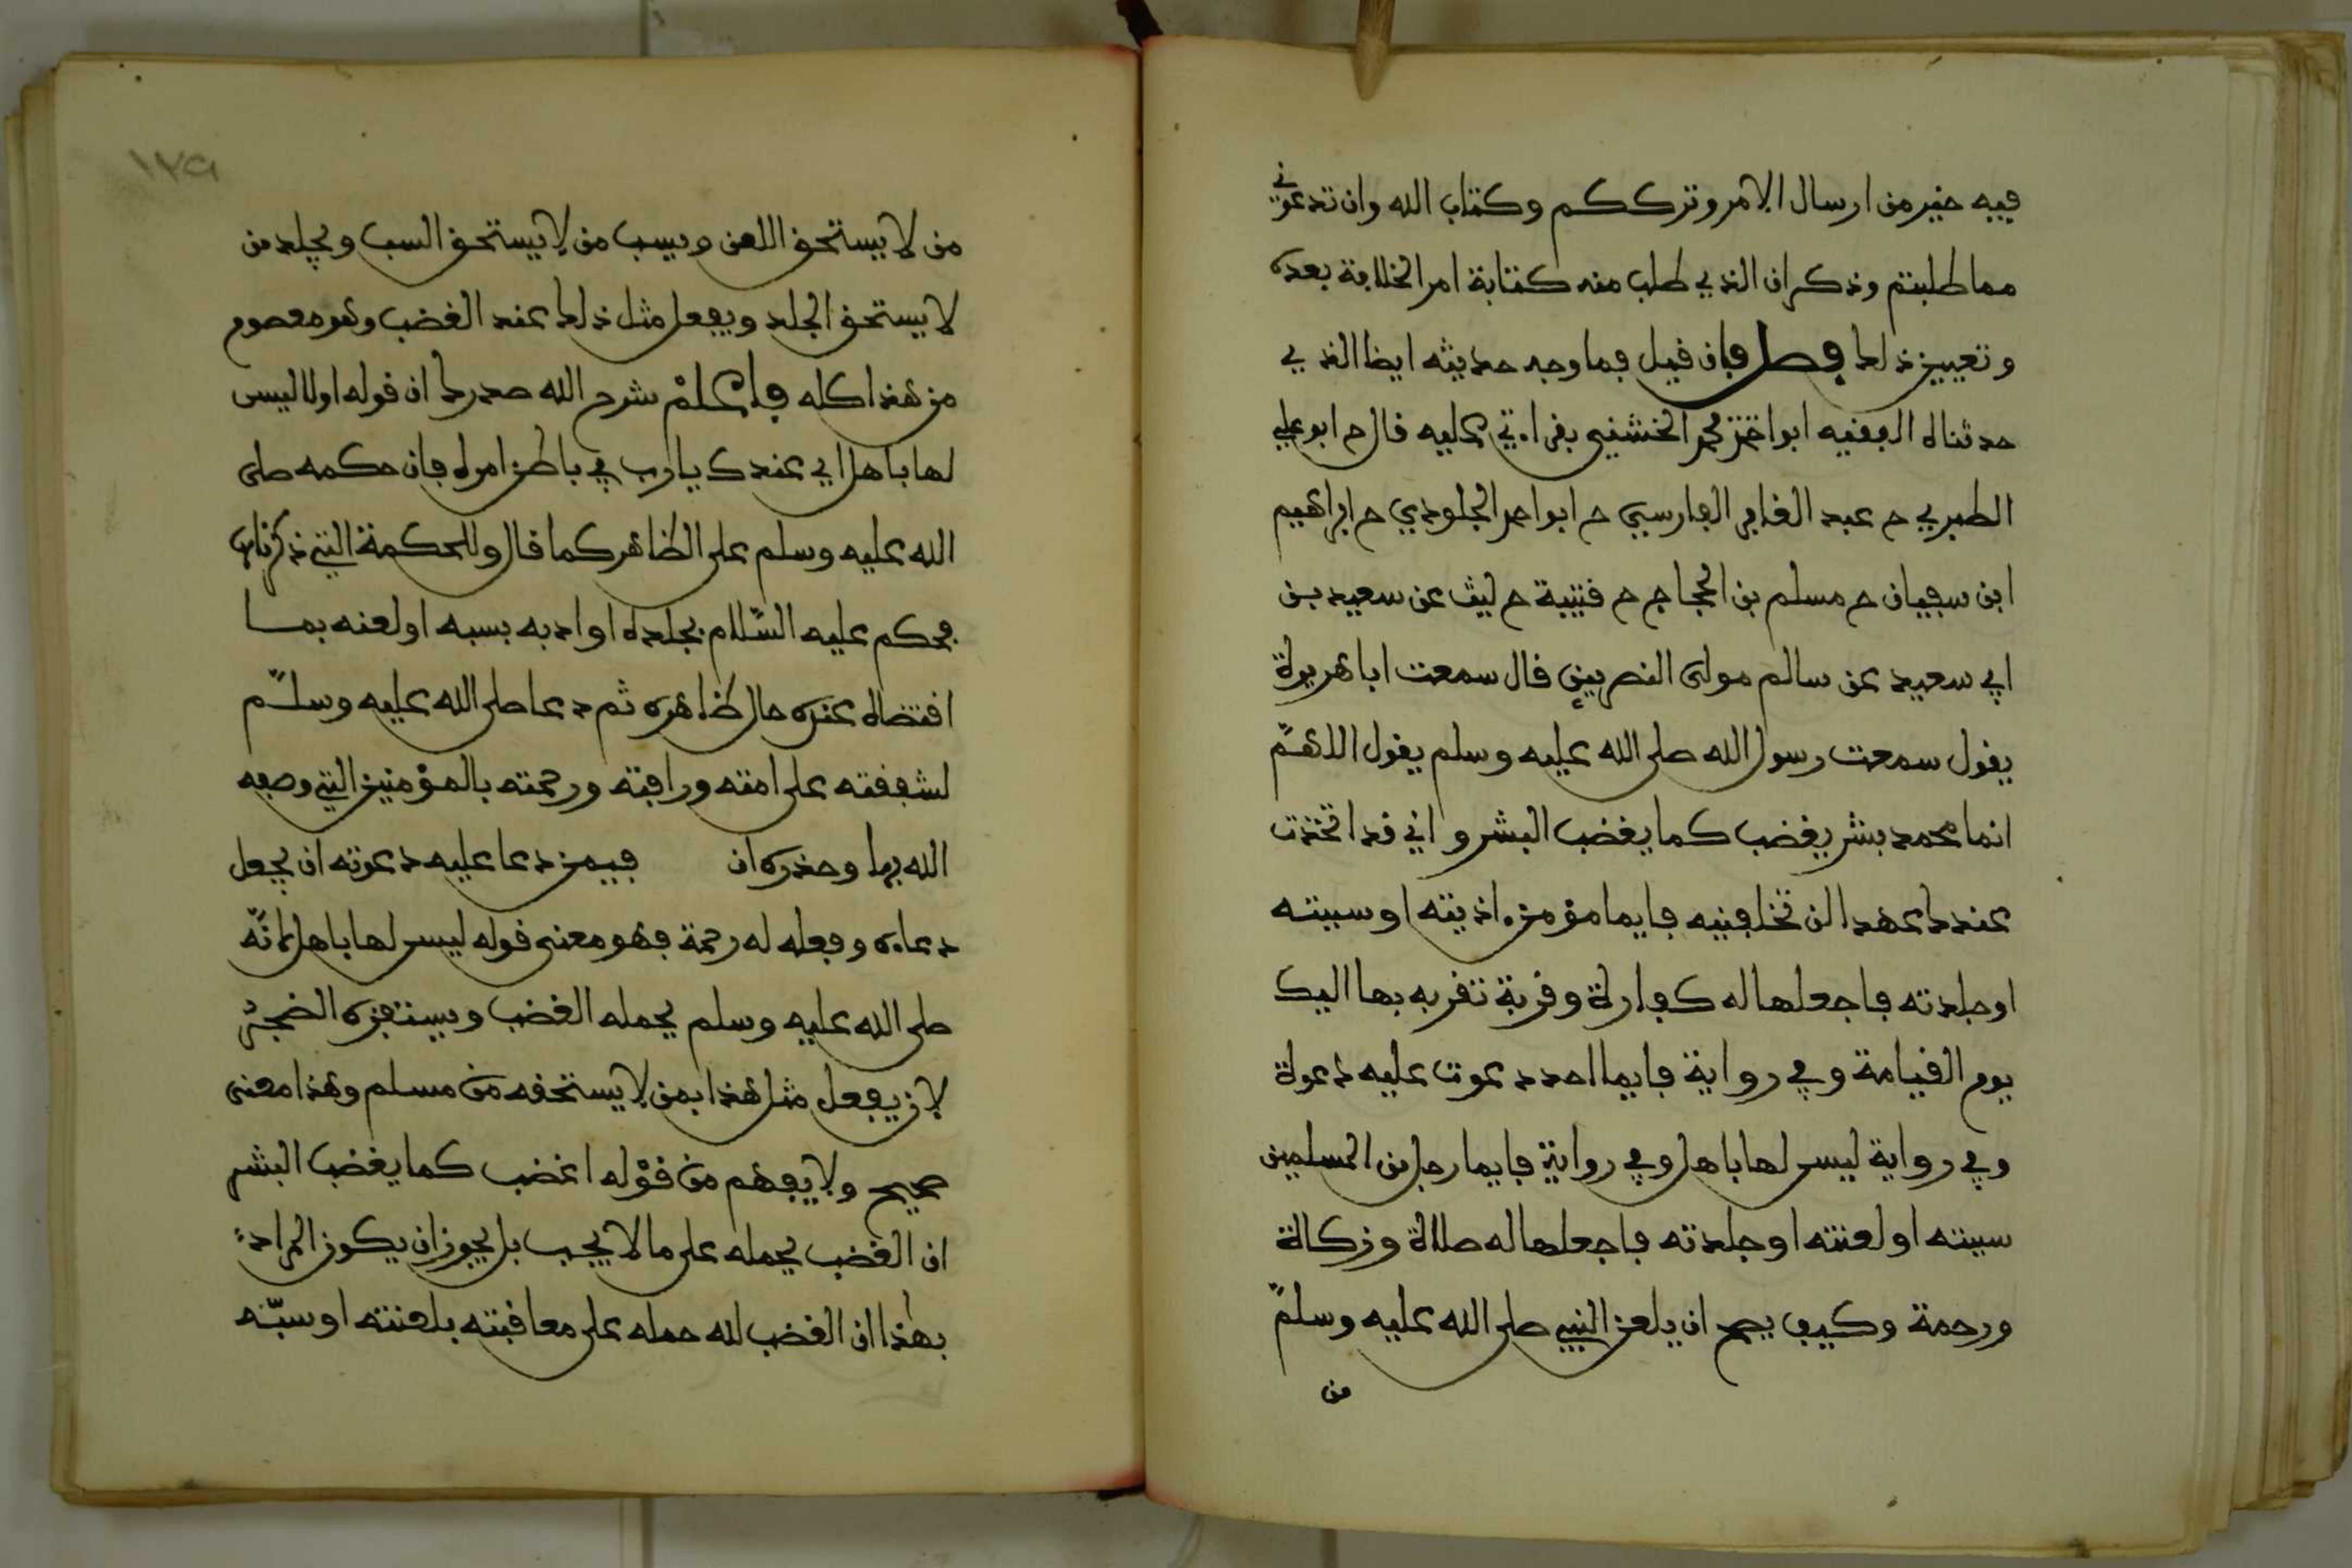 فيه خير من ارسال الامر وترككم وكتاب الله وان تدعوني
مما طلبتم وذكر ان الذي طلب منه كتابة امر الخلافة بعده
وتعيين ذلك فصل فان قيل فما وجه حديثه ايضا الذي
حدثناه الفقيه ابو محمد الخشني بقراءتي عليه قال ح ابو علي
الطبري ح عبد الغافر الفارسي ح ابو احمد الجلودي ح ابراهيم
ابن سفيان ح مسلم بن الحجاج ح قتيبة ح ليث عن سعيد بن
ابي سعيد عن سالم مولى النصريين قال سمعت ابا هريرة
يقول سمعت رسول الله صلى الله عليه وسلم يقول اللهم
انما محمد بشر يغضب كما يغضب البشر واني قد اتخذت
عندك عهدا لن تخلفنيه فايما مؤمن اذيته او سببته
او جلدته فاجعلها له كفارة وقربة تقربه بها اليك
يوم القيامة وفي رواية فايما احد دعوت عليه دعوة
وفي رواية ليس لها باهل وفي رواية فايما رجل من المسلمين
سببته او لعنته او جلدته فاجعلها له صلاة وزكاة
ورحمة وكيف يصح ان يلعن النبي صلى الله عليه وسلم
من
١٢٩
من لا يستحق اللعن ويسب من لا يستحق السب ويجلد من
لا يستحق الجلد ويفعل مثل ذلك عند الغضب وهو معصوم
من هذا كله فاعلم شرح الله صدرك ان قوله اولا ليس
لها باهل اي عندك يا رب في باطن امره فان حكمه صلى
الله عليه وسلم على الظاهر كما قال وللحكمة التي ذكرناها
فحكم عليه السلام بجلده او ادبه بسبه او لعنه بما
اقتضاه عنده حال ظاهره ثم دعا صلى الله عليه وسلم
لشفقته على امته ورافته ورحمته بالمؤمنين التي وصفه
الله بها وحذره ان فيمن دعا عليه دعوته ان يجعل
دعاءه وفعله له رحمة فهو معنى قوله ليس لها باهل لا انه
صلى الله عليه وسلم يحمله الغضب ويستفزه الضجر
لان يفعل مثل هذا بمن لا يستحقه من مسلم وهذا معنى
صحيح ولا يفهم من قوله اغضب كما يغضب البشر
ان الغضب يحمله على ما لا يجب بل يجوز ان يكون المراد
بهذا ان الغضب لله حمله على معاقبته بلعنته او سبه